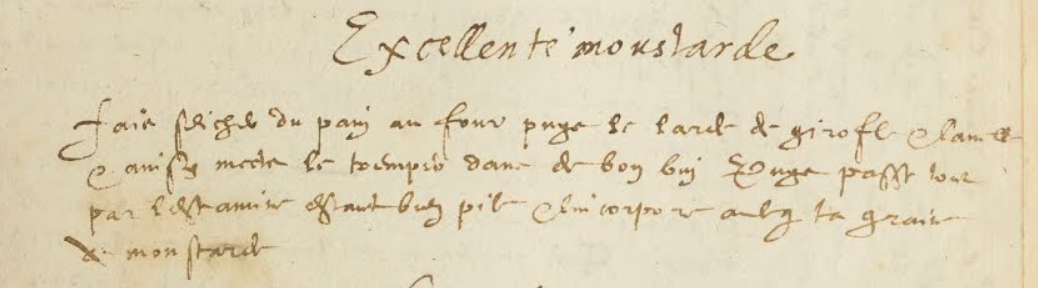 Excellente moustarde
Fais seicher du pain au four puys le larde de girofle & canelle
& ainsy mects le tremper dans de bon vin & puys passe tout
par lestamine estant bien pile & lincorpore avecq ta graine
de moustarde